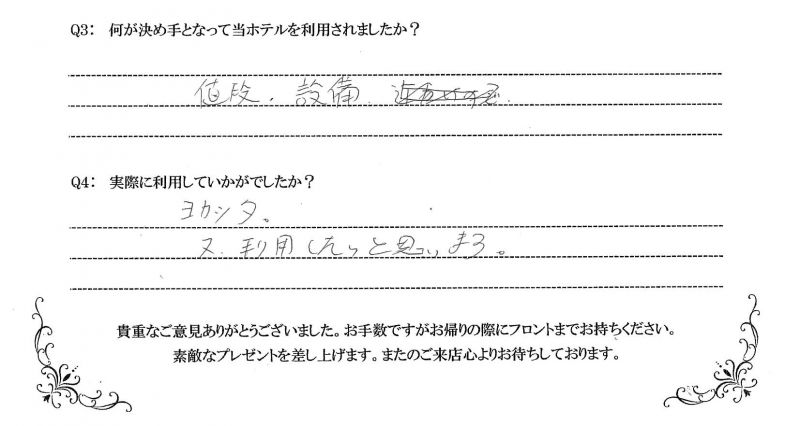 Q3: 何が決め手となって当ホテルを利用されましたか？
値段、設備、
Q4: 実際に利用していかがでしたか？
ヨカッタ。
又、利用したいと思います。
貴重なご意見ありがとうございました。お手数ですがお帰りの際にフロントまでお持ちください。
素敵なプレゼントを差し上げます。またのご来店心よりお待ちしております。